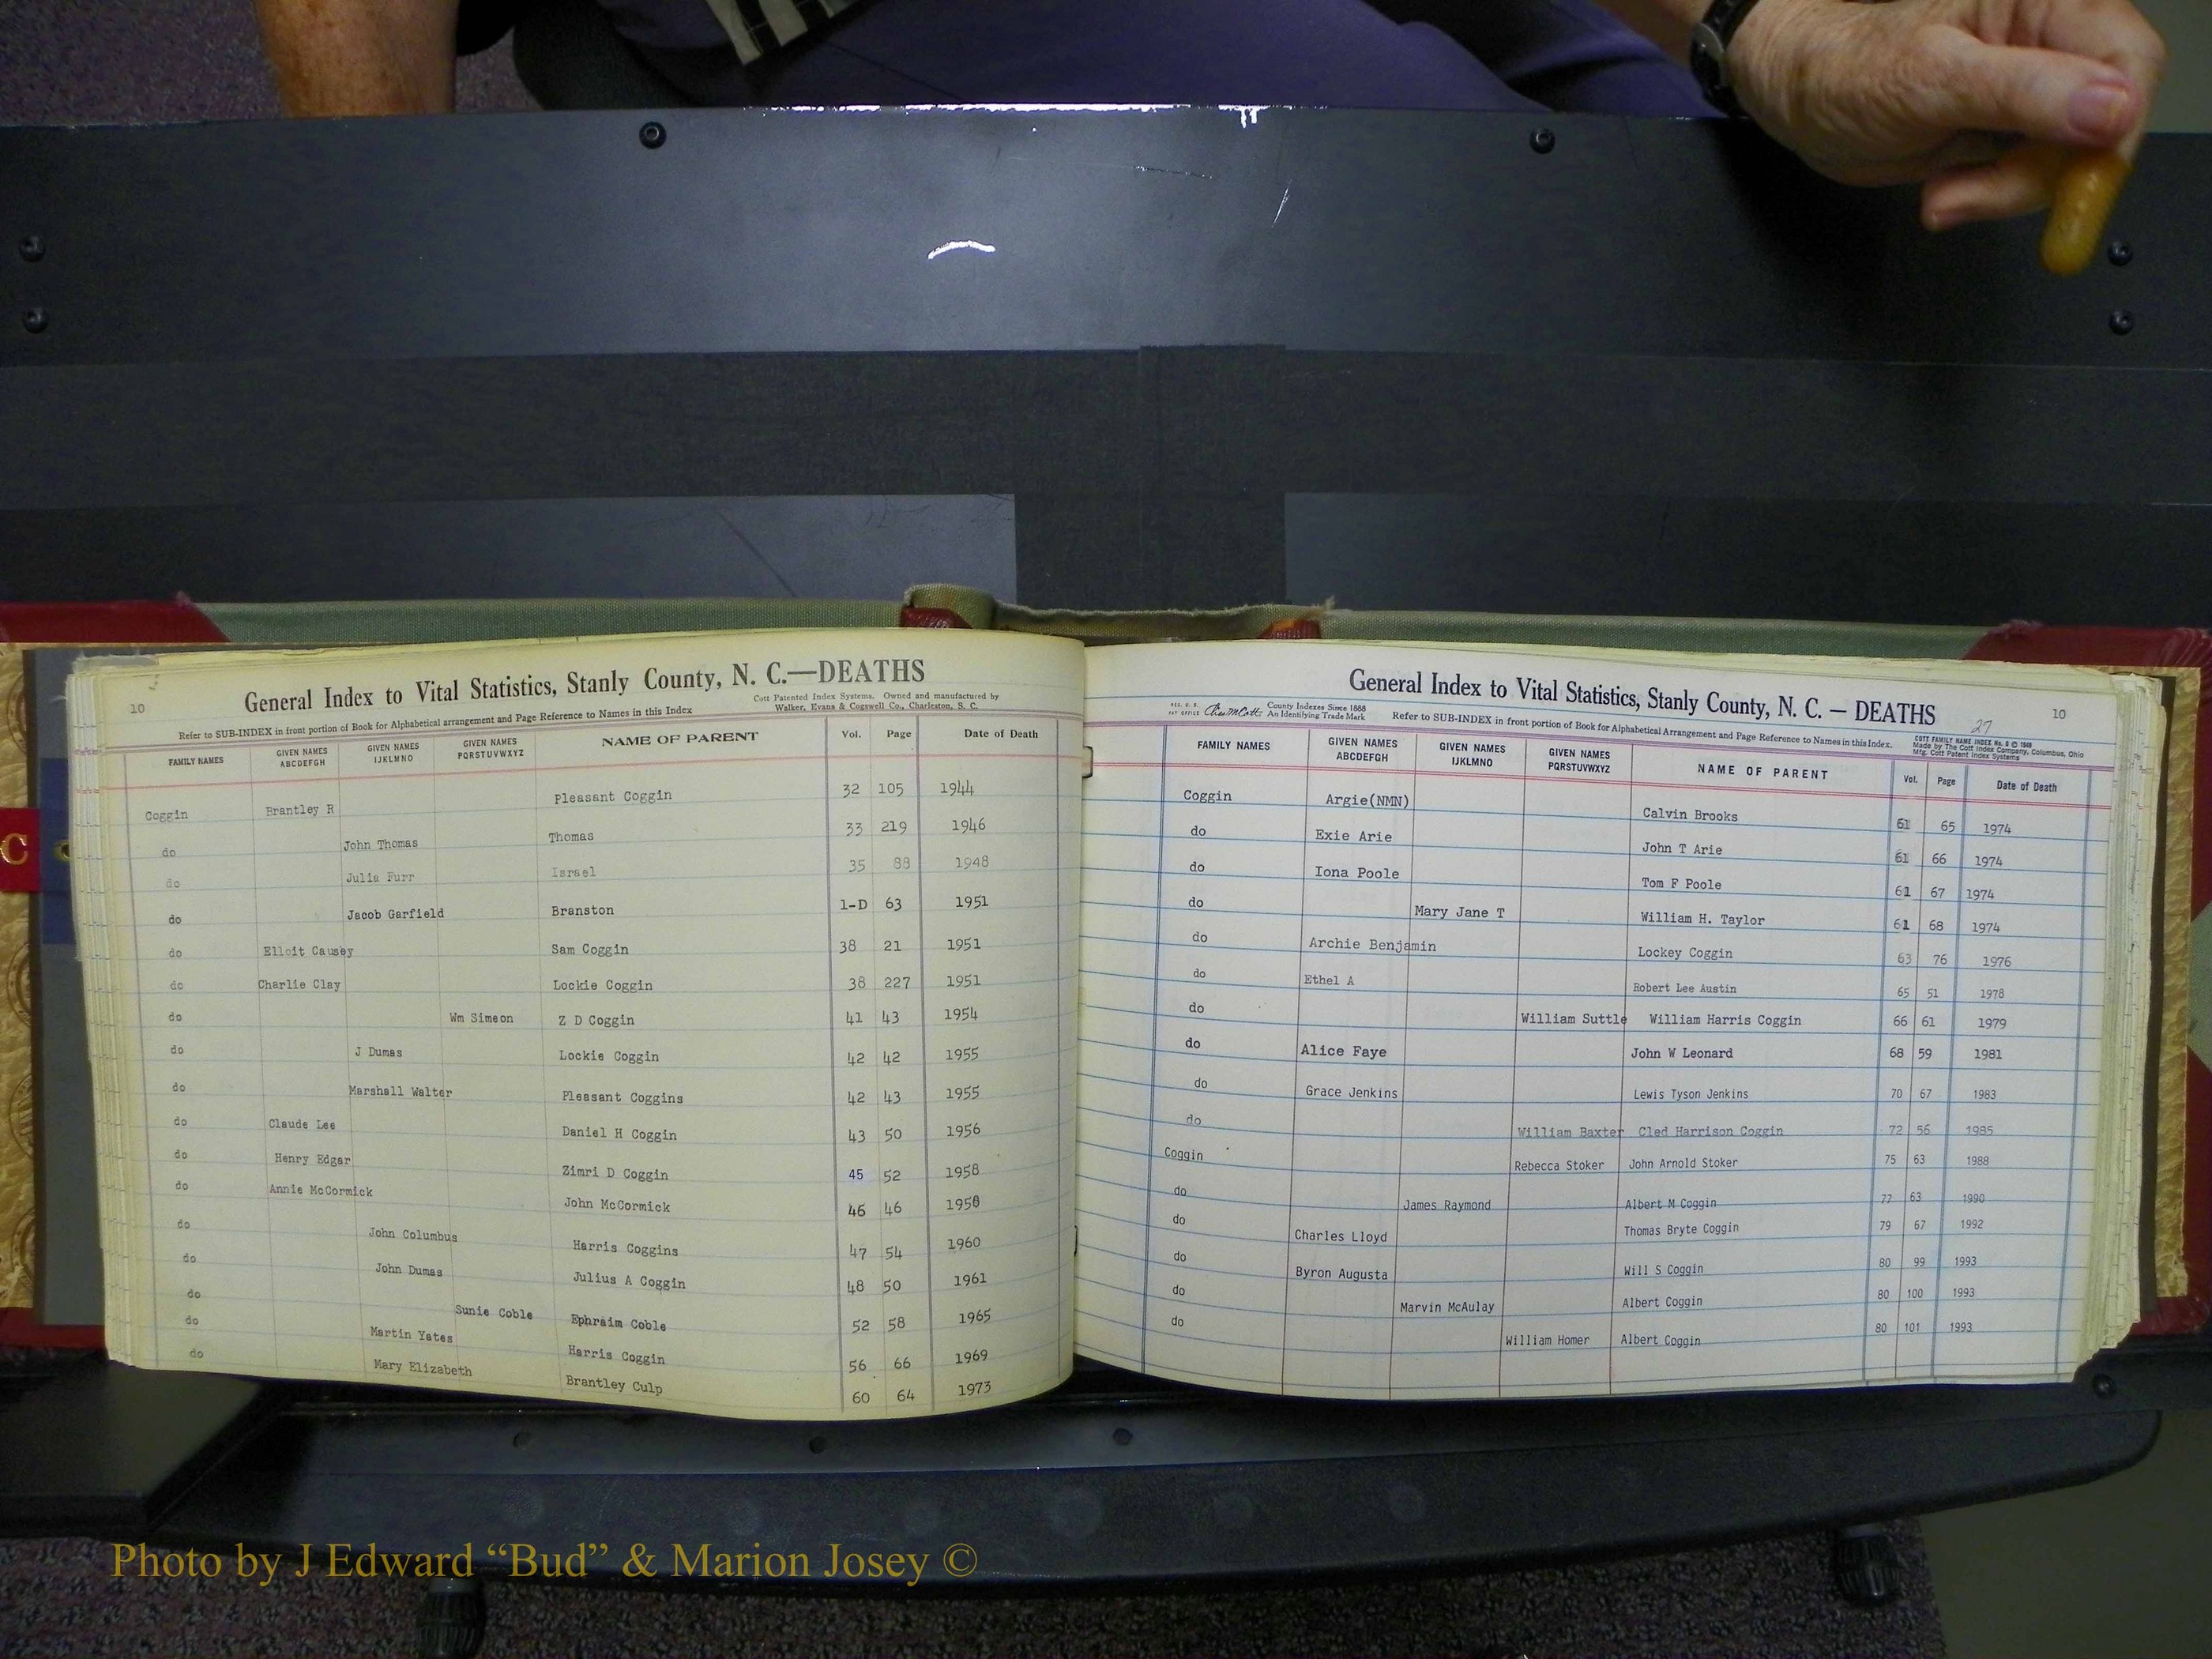 10
General Index to Vital Statistics, Stanly County, N. C.—DEATHS
Cott Patented Index Systems. Owned and manufactured by
Walker, Evans & Cogswell Co., Charleston, S. C.
Refer to SUB-INDEX in front portion of Book for Alphabetical arrangement and Page Reference to Names in this Index
FAMILY NAMES GIVEN NAMES ABCDEFGH GIVEN NAMES IJKLMNO GIVEN NAMES PQRSTUVWXYZ NAME OF PARENT Vol. Page Date of Death
Coggin Brantley R Pleasant Coggin 32 105 1944
do John Thomas Thomas 33 219 1946
do Julia Furr Israel 35 88 1948
do Jacob Garfield Branston 1-D 63 1951
do Elloit Causey Sam Coggin 38 21 1951
do Charlie Clay Lockie Coggin 38 227 1951
do Wm Simeon Z D Coggin 41 43 1954
do J Dumas Lockie Coggin 42 42 1955
do Marshall Walter Pleasant Coggins 42 43 1955
do Claude Lee Daniel H Coggin 43 50 1956
do Henry Edgar Zimri D Coggin 45 52 1958
do Annie McCormick John McCormick 46 46 1958
do John Columbus Harris Coggins 47 54 1960
do John Dumas Julius A Coggin 48 50 1961
do Sunie Coble Ephraim Coble 52 58 1965
do Martin Yates Harris Coggin 56 66 1969
do Mary Elizabeth Brantley Culp 60 64 1973
C
General Index to Vital Statistics, Stanly County, N. C. — DEATHS
27
10
REG. U. S.
PAT OFFICE
County Indexes Since 1888
An Identifying Trade Mark
Refer to SUB-INDEX in front portion of Book for Alphabetical Arrangement and Page Reference to Names in this Index.
COTT FAMILY NAME INDEX No. 6 ©
Made by The Cott Index Company, Columbus, Ohio
Mfg. Cott Patent Index Systems
FAMILY NAMES GIVEN NAMES ABCDEFGH GIVEN NAMES IJKLMNO GIVEN NAMES PQRSTUVWXYZ NAME OF PARENT Vol. Page Date of Death
Coggin Argie(NMN) Calvin Brooks 61 65 1974
do Exie Arie John T Arie 61 66 1974
do Iona Poole Tom F Poole 61 67 1974
do Mary Jane T William H. Taylor 61 68 1974
do Archie Benjamin Lockey Coggin 63 76 1976
do Ethel A Robert Lee Austin 65 51 1978
do William Suttle William Harris Coggin 66 61 1979
do Alice Faye John W Leonard 68 59 1981
do Grace Jenkins Lewis Tyson Jenkins 70 67 1983
do William Baxter Cled Harrison Coggin 72 56 1985
Coggin Rebecca Stoker John Arnold Stoker 75 63 1988
do James Raymond Albert M Coggin 77 63 1990
do Charles Lloyd Thomas Bryte Coggin 79 67 1992
do Byron Augusta Will S Coggin 80 99 1993
do Marvin McAulay Albert Coggin 80 100 1993
do William Homer Albert Coggin 80 101 1993
Photo by J Edward “Bud” & Marion Josey ©